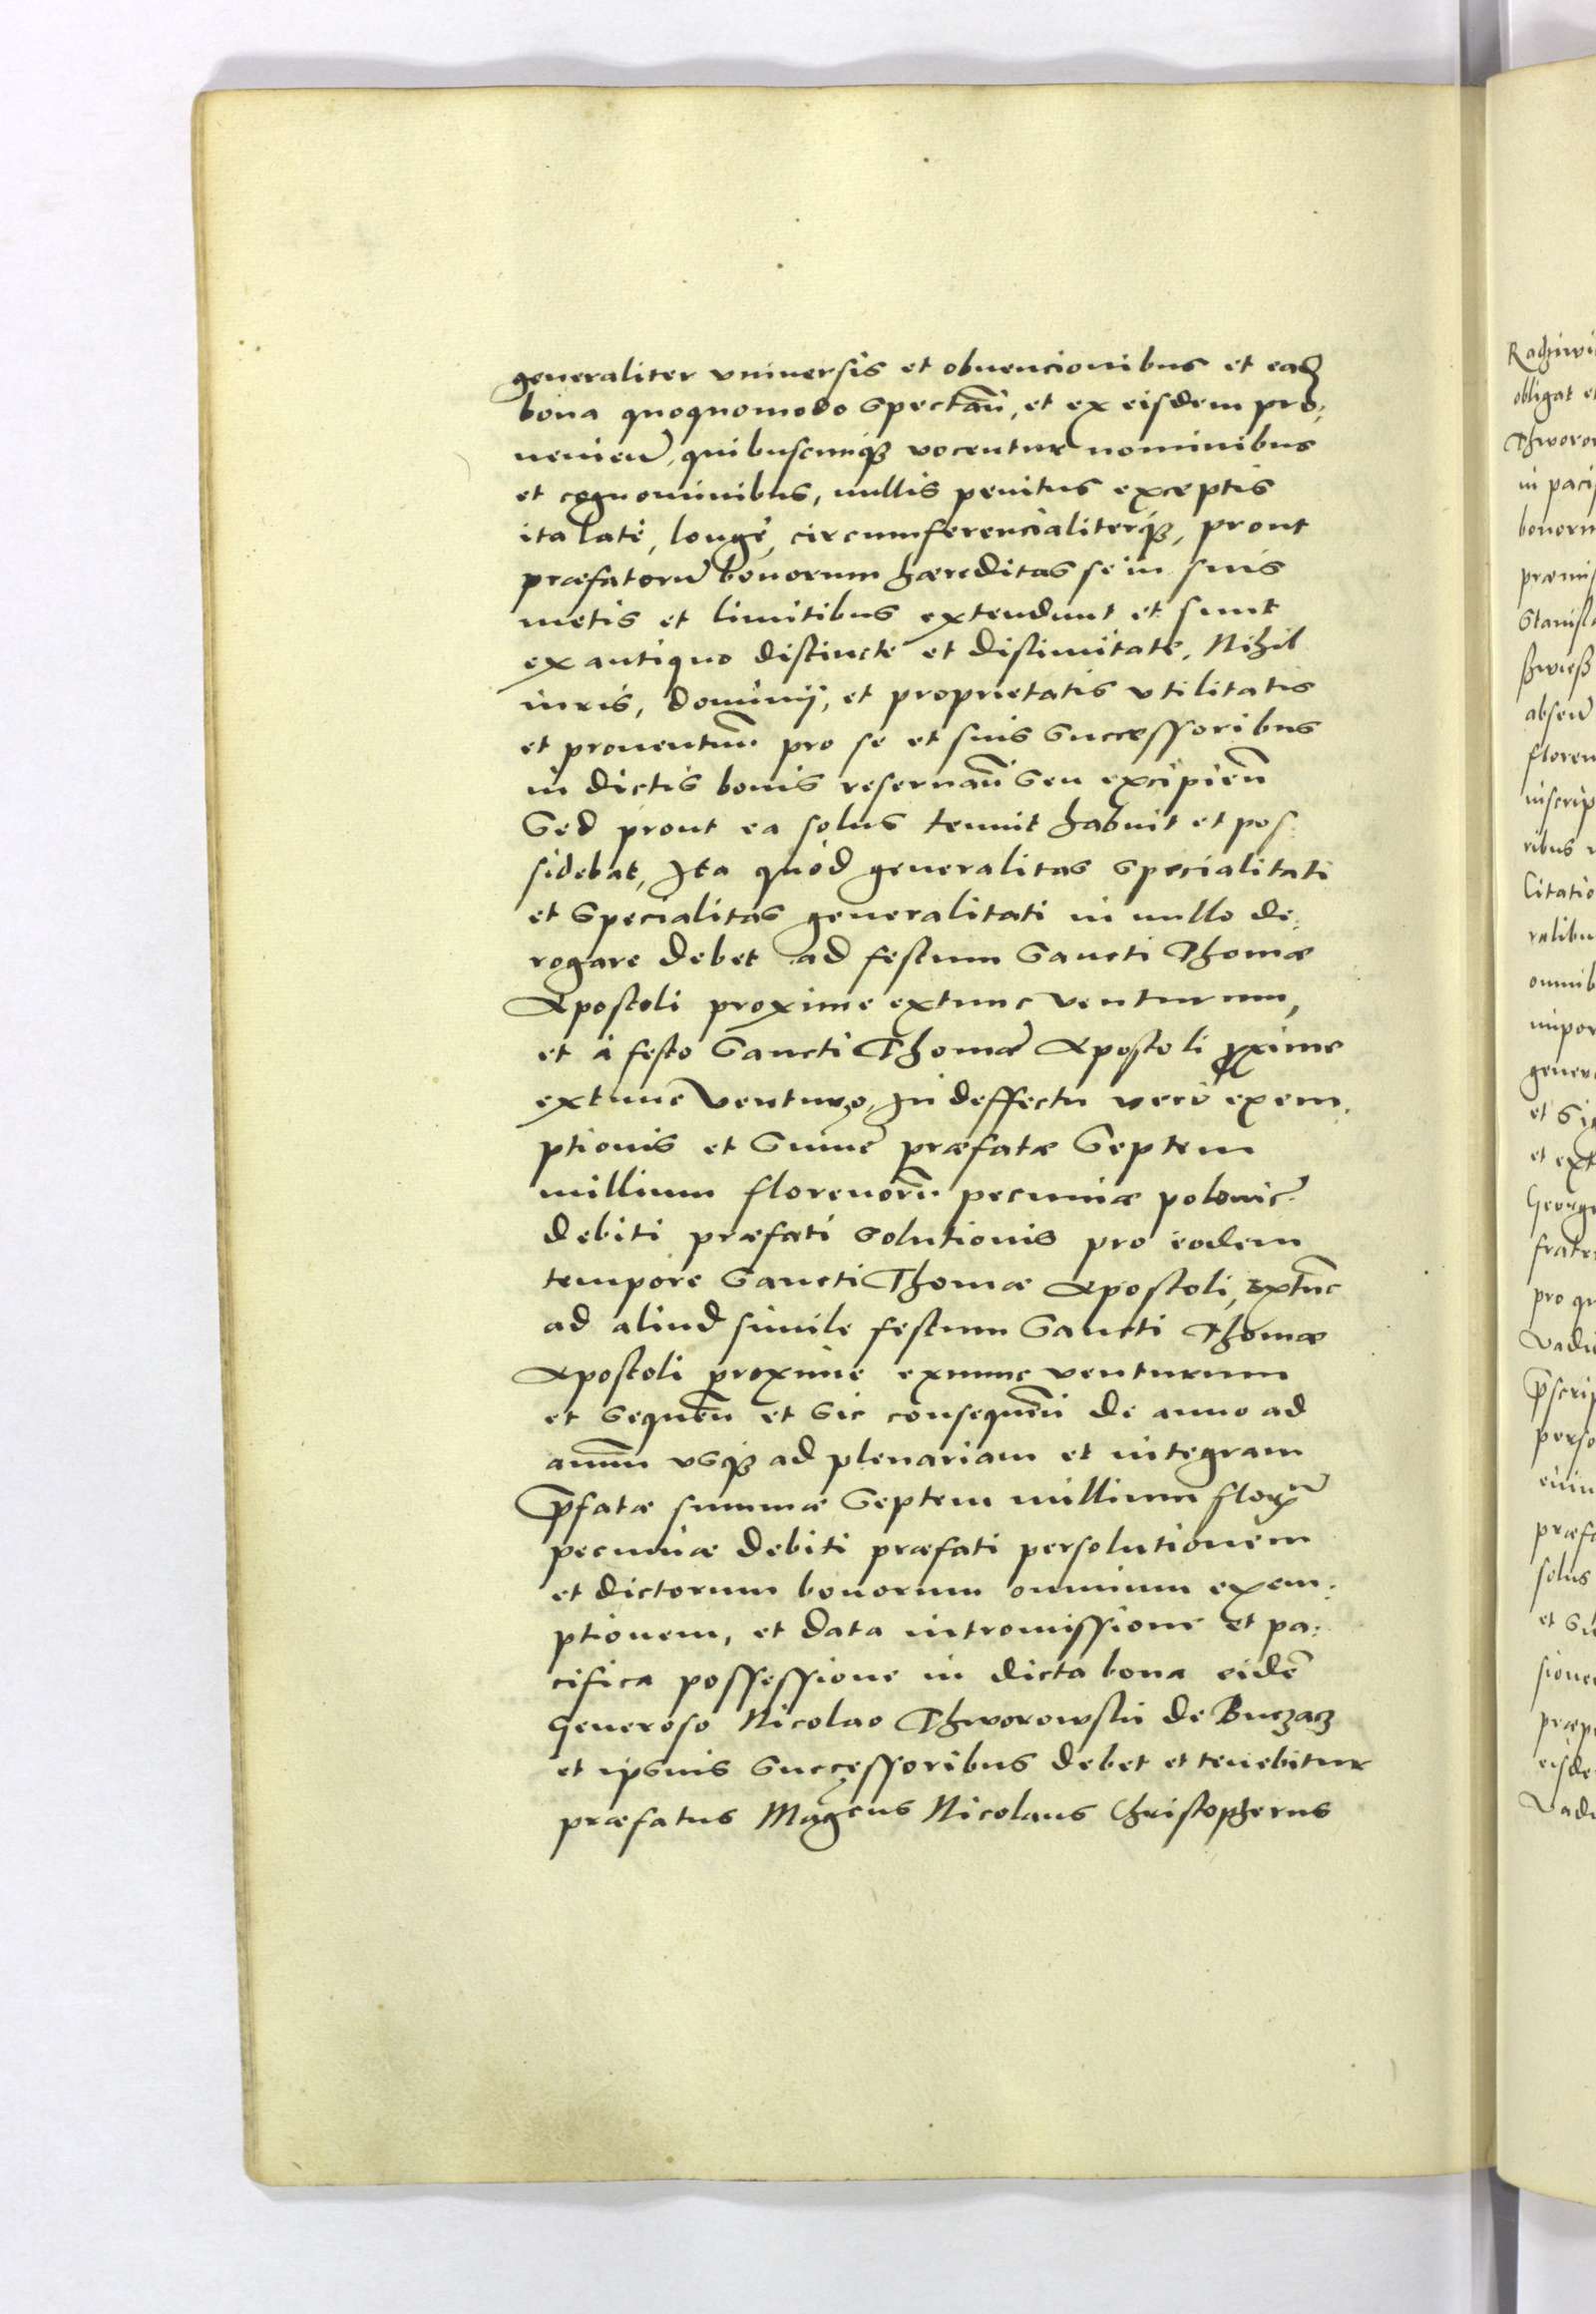 generaliter vniuersis et obuencionibus et ead
bona quoquomodo spectan̄, et ex eisdem pro:
nenien̄, quibuscunq₃ vocentur nominibus
et cognominibus, nullis penitus exceptis
ita latè, longè, circumferencialiterq₃, prout
præfatorū bonorum hæreditas se in suis
metis et limitibus extendunt et sunt
ex antiquo distincte et distimitate, Nihil
iuris, dominij, et proprietatis vtilitatis
et prouentuū pro se et suis Successoribus
in dictis bonis reseruan̄ seu excipien̄
Sed prout ea solus tenuit habuit et pos:
sidebat, Ita quòd generalitas specialitati
et specialitas generalitati in nullo de:
rogare debet ad festum Sancti Thomæ
Apostoli proxime extunc venturum,
et à festo Sancti Thomæ Apostoli ꝓxime
extunc venturo, in deffectu veri exem:
ptionis et Summæ præfatæ Septem
millium florenorū pecuniæ polonic̄
debiti præfati solutionis pro eodem
tempore Sancti Thomæ Apostoli, extūc
ad aliud simile festum Sancti Thomæ
Apostoli proxime exnunc venturum
et sequen̄ et sic consequen̄ de anno ad
annum vsq₃ ad plenariam et integram
p̄fatæ summæ Septem millium flor̄
pecuniæ debiti præfati persolutionem
et dictorum bonorum omnium exem:
ptionem, et data intromissione et pa:
cifica possessione in dicta bona eidē
Generoso Nicolao Thworowski de Buczacz
et ipsius successoribus debet et tenebitur
præfatus Mag̃cus Nicolaus Christopherus